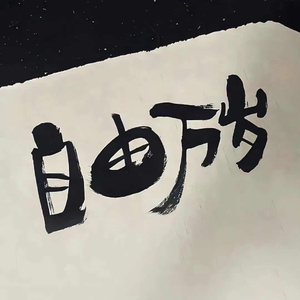 自由万岁